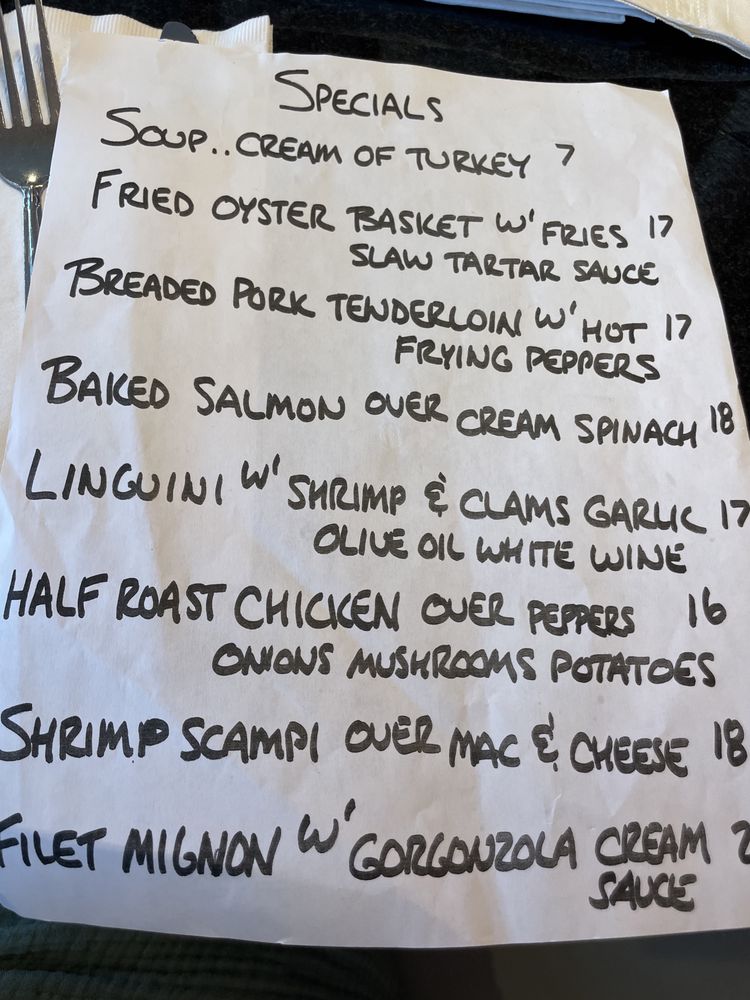 SPECIALS
SOUP..CREAM OF TURKEY 7
FRIED OYSTER BASKET W' FRIES 17
SLAW TARTAR SAUCE
BREADED PORK TENDERLOIN W' HOT 17
FRYING PEPPERS
BAKED SALMON OVER CREAM SPINACH 18
LINGUINI W' SHRIMP & CLAMS GARLIC 17
OLIVE OIL WHITE WINE
HALF ROAST CHICKEN OVER PEPPERS 16
ONIONS MUSHROOMS POTATOES
SHRIMP SCAMPI OVER MAC & CHEESE 18
FILET MIGNON W' GORGONZOLA CREAM
SAUCE